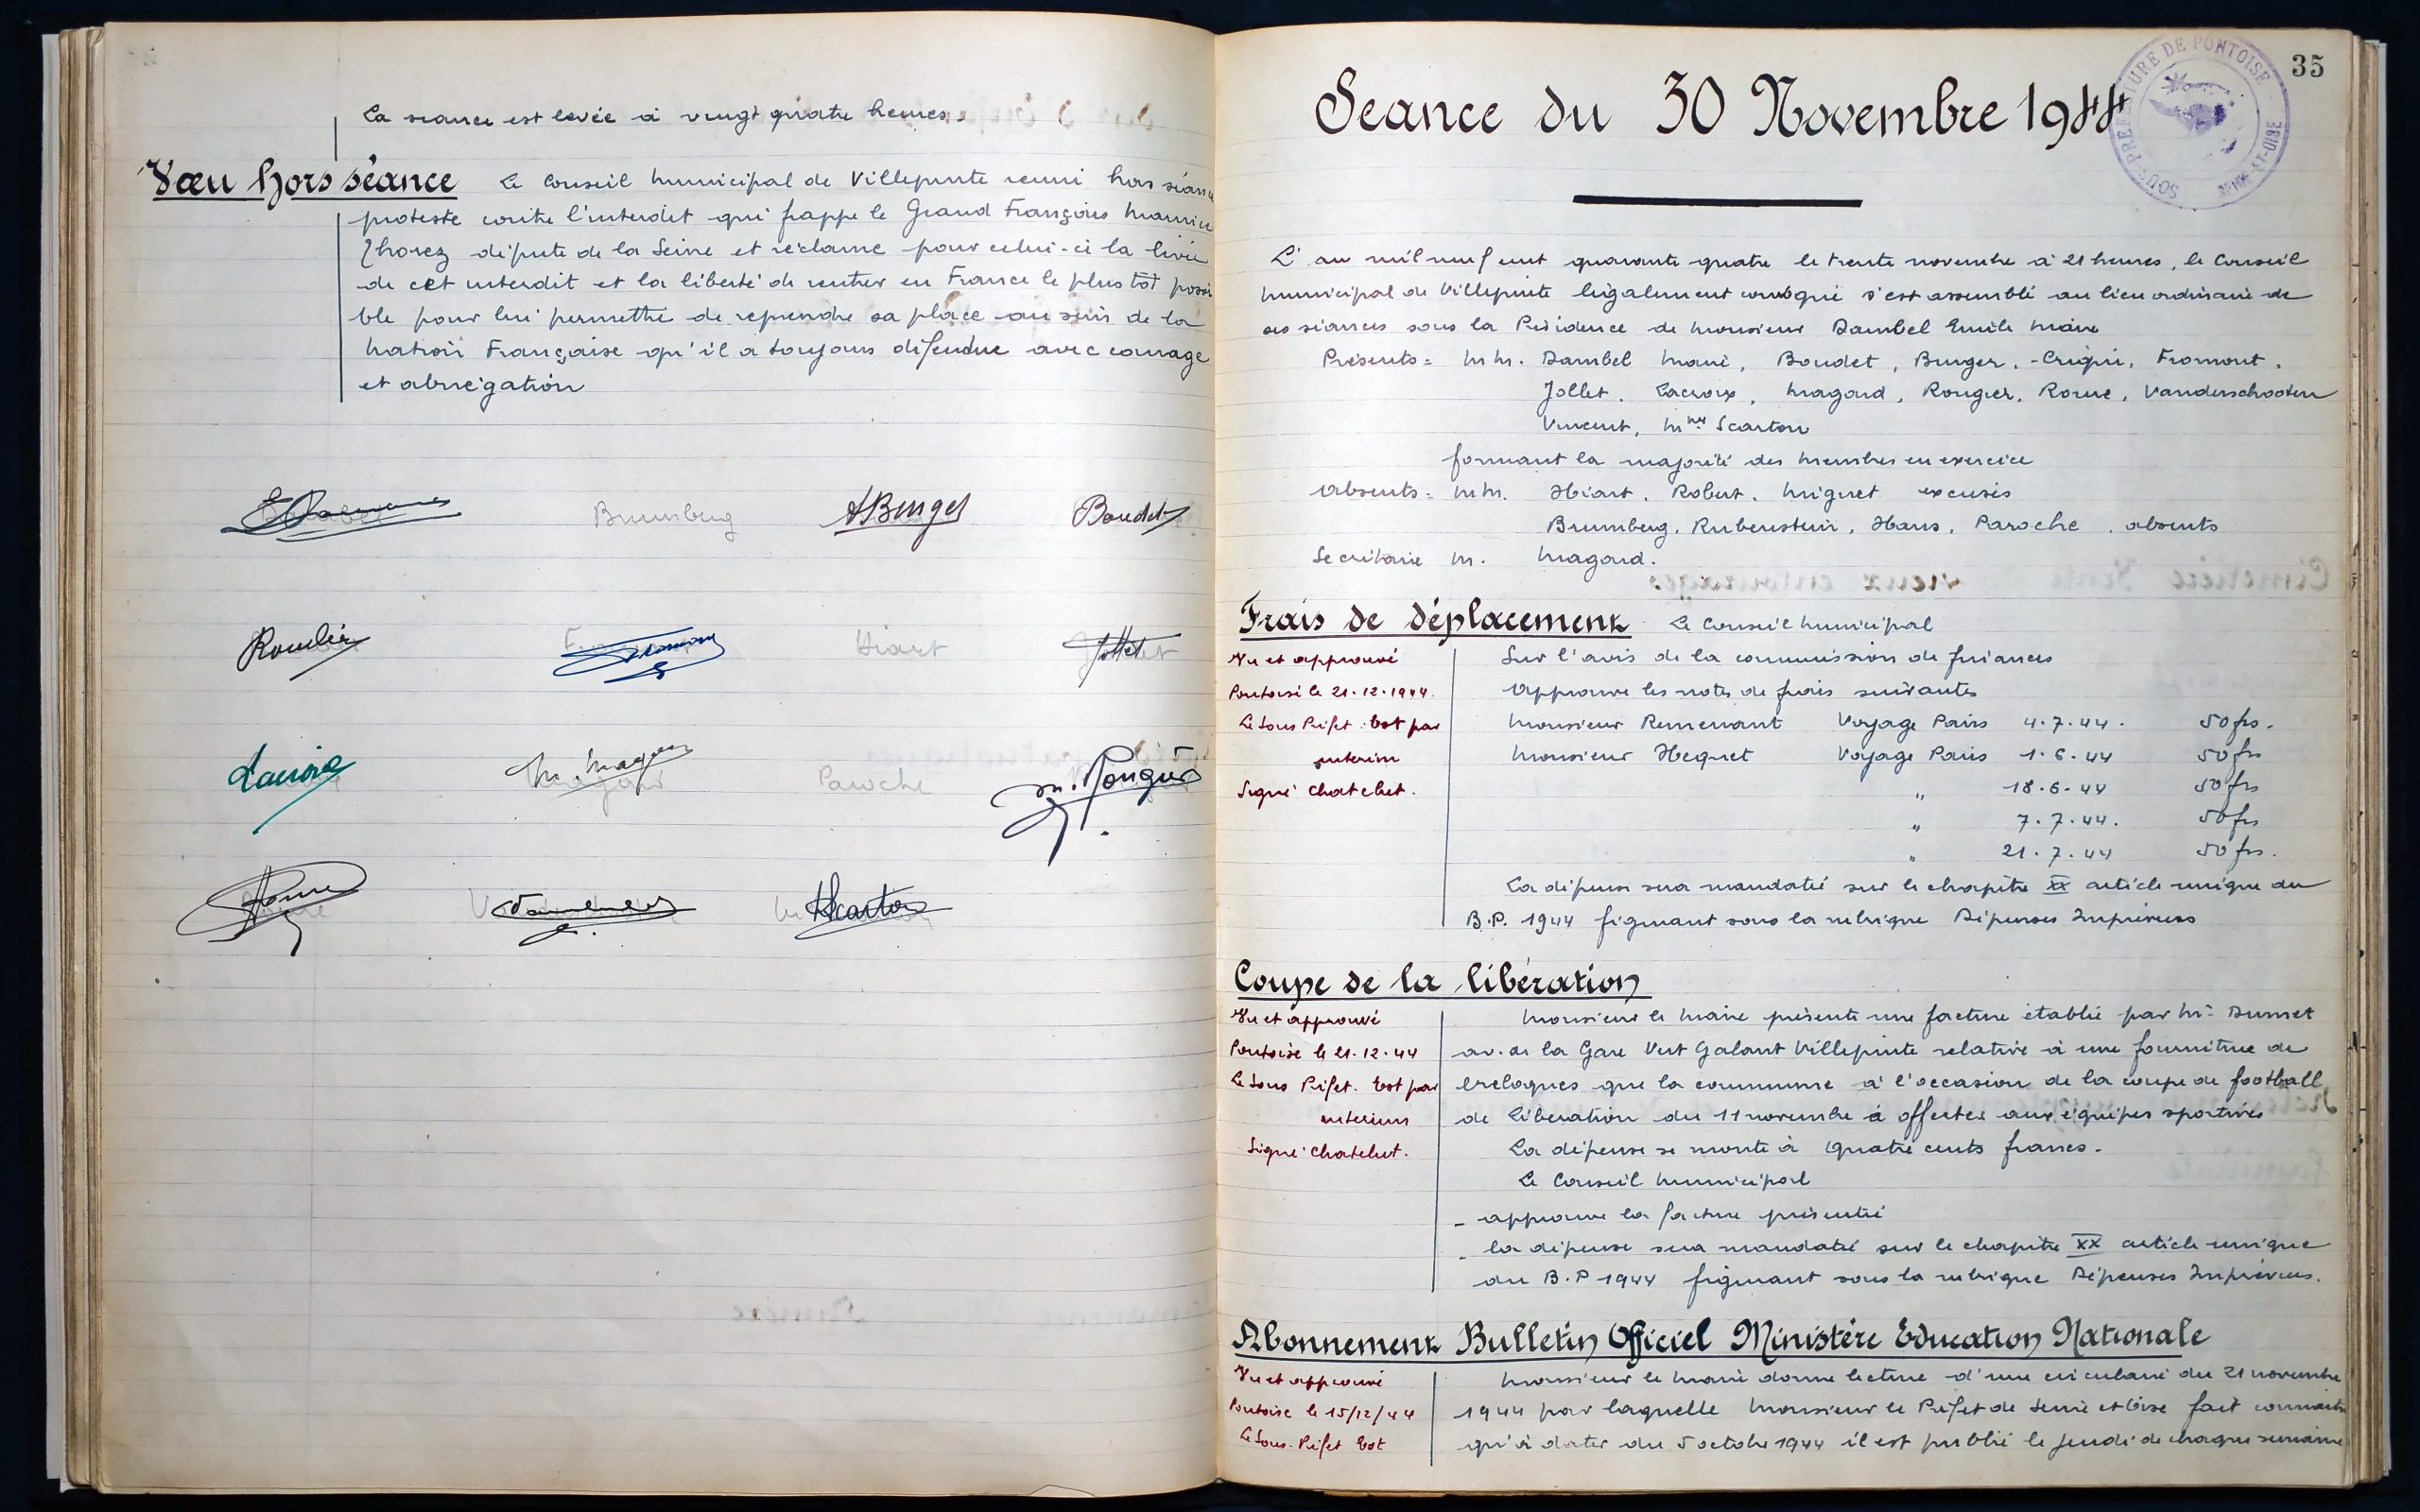 La séance est levée à vingt quatre heures.
Vœu hors séance Le Conseil Municipal de Villepinte reuni hors séance
proteste contre l'interdit qui frappe le Grand Français Maurice
Thorez député de la Seine et réclame pour celui-ci la livée
de cet interdit et la liberté de rentrer en France le plus tôt possi
ble pour lui permettre de reprendre sa place au sein de la
Nation Française qu'il a toujours défendue avec courage
et abnégation
Brumberg ABurger Boudet
Roulier Fromont Hiart Jollet
Lacroix M. Magard Paroche M. Rougier
Rome Scarton
35
SOUS-PRÉFECTURE DE PONTOISE
SEINE-ET-OISE
Seance du 30 Novembre 1944
L'an mil neuf cent quarante quatre le trente novembre à 21 heures, le Conseil
Municipal de Villepinte légalement convoqué s'est assemblé au lieu ordinaire de
ses séances sous la Présidence de Monsieur Dambel Emile Maire
Présents = MM. Dambel Maire, Boudet, Burger, Crépin, Fromont,
Jollet, Lacroix, Magard, Rougier, Rome, Vanderschooten
Vincent, Mme Scarton
formant la majorité des membres en exercice
Absents = MM. Hiart, Robert, Miguet excusés
Brumberg, Rubenstein, Hans, Paroche, absents
Secrétaire M. Magard.
Frais de déplacement Le Conseil Municipal
Vu et approuvé
Pontoise le 21.12.1944
Le Sous Préfet Bot par
interim
Signé Chatelet.
Sur l'avis de la commission de finances
Approuve les notes de frais suivantes
Monsieur Remenant Voyage Paris 4.7.44. 50 frs.
Monsieur Hequet Voyage Paris 1.6.44 50 frs
" 18.6.44 50 frs
" 7.7.44. 50 frs
" 21.7.44 50 frs.
La dépense sera mandatée sur le chapitre XX article unique du
B.P. 1944 figurant sous la rubrique Dépenses Imprévues
Coupe de la libération
Vu et approuvé
Pontoise le 21.12.44
Le Sous Préfet. Bot par
interim
Signé Chatelet.
Monsieur le Maire présente une facture établie par Mr Dumet
av. de la Gare Vert Galant Villepinte relative à une fourniture de
breloques que la commune à l'occasion de la coupe de football
de Libération du 11 novembre à offertes aux équipes sportives
La dépense se monte à Quatre cents francs.
Le Conseil Municipal
- approuve la facture présentée
- la dépense sera mandatée sur le chapitre XX article unique
du B.P 1944 figurant sous la rubrique Dépenses Imprévues.
Abonnement Bulletin Officiel Ministère Education Nationale
Vu et approuvé
Pontoise le 15/12/44
Le Sous-Préfet Bot
Monsieur le Maire donne lecture d'une circulaire du 21 novembre
1944 par laquelle Monsieur le Préfet de Seine et Oise fait connaitre
qu'à dater du 5 octobre 1944 il est publié le jeudi de chaque semaine